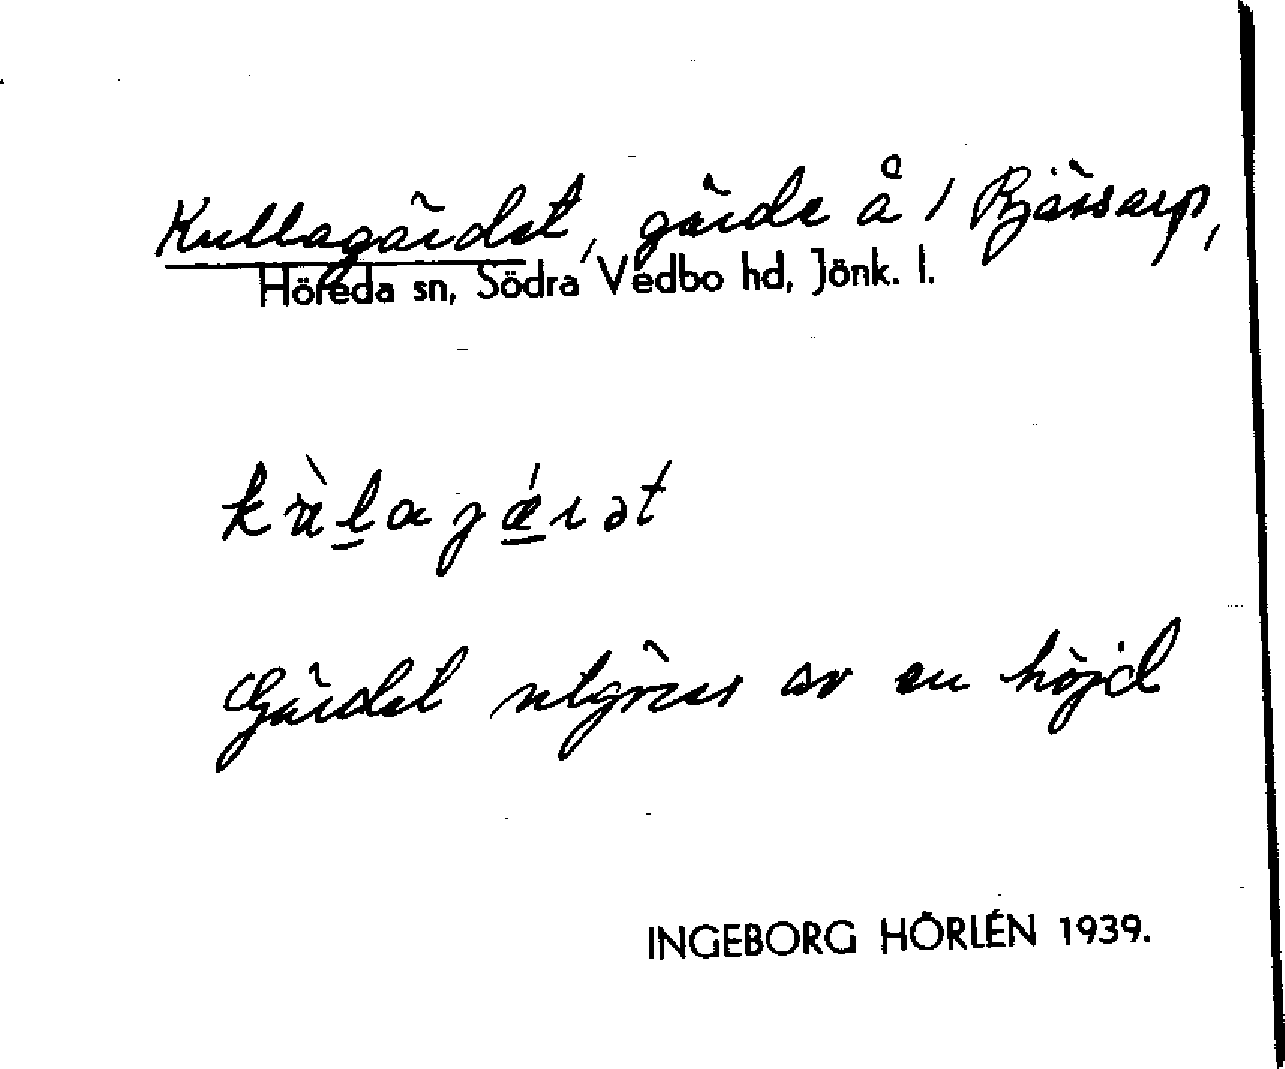 Kullagärdet, gärde å 1 Bjässarp,
Höreda sn, Södra Vedbo hd, Jönk. l.
kùl̲aɣǽ̲ɩət
Gärdet utgöres av en höjd
INGEBORG HÖRLÉN 1939.